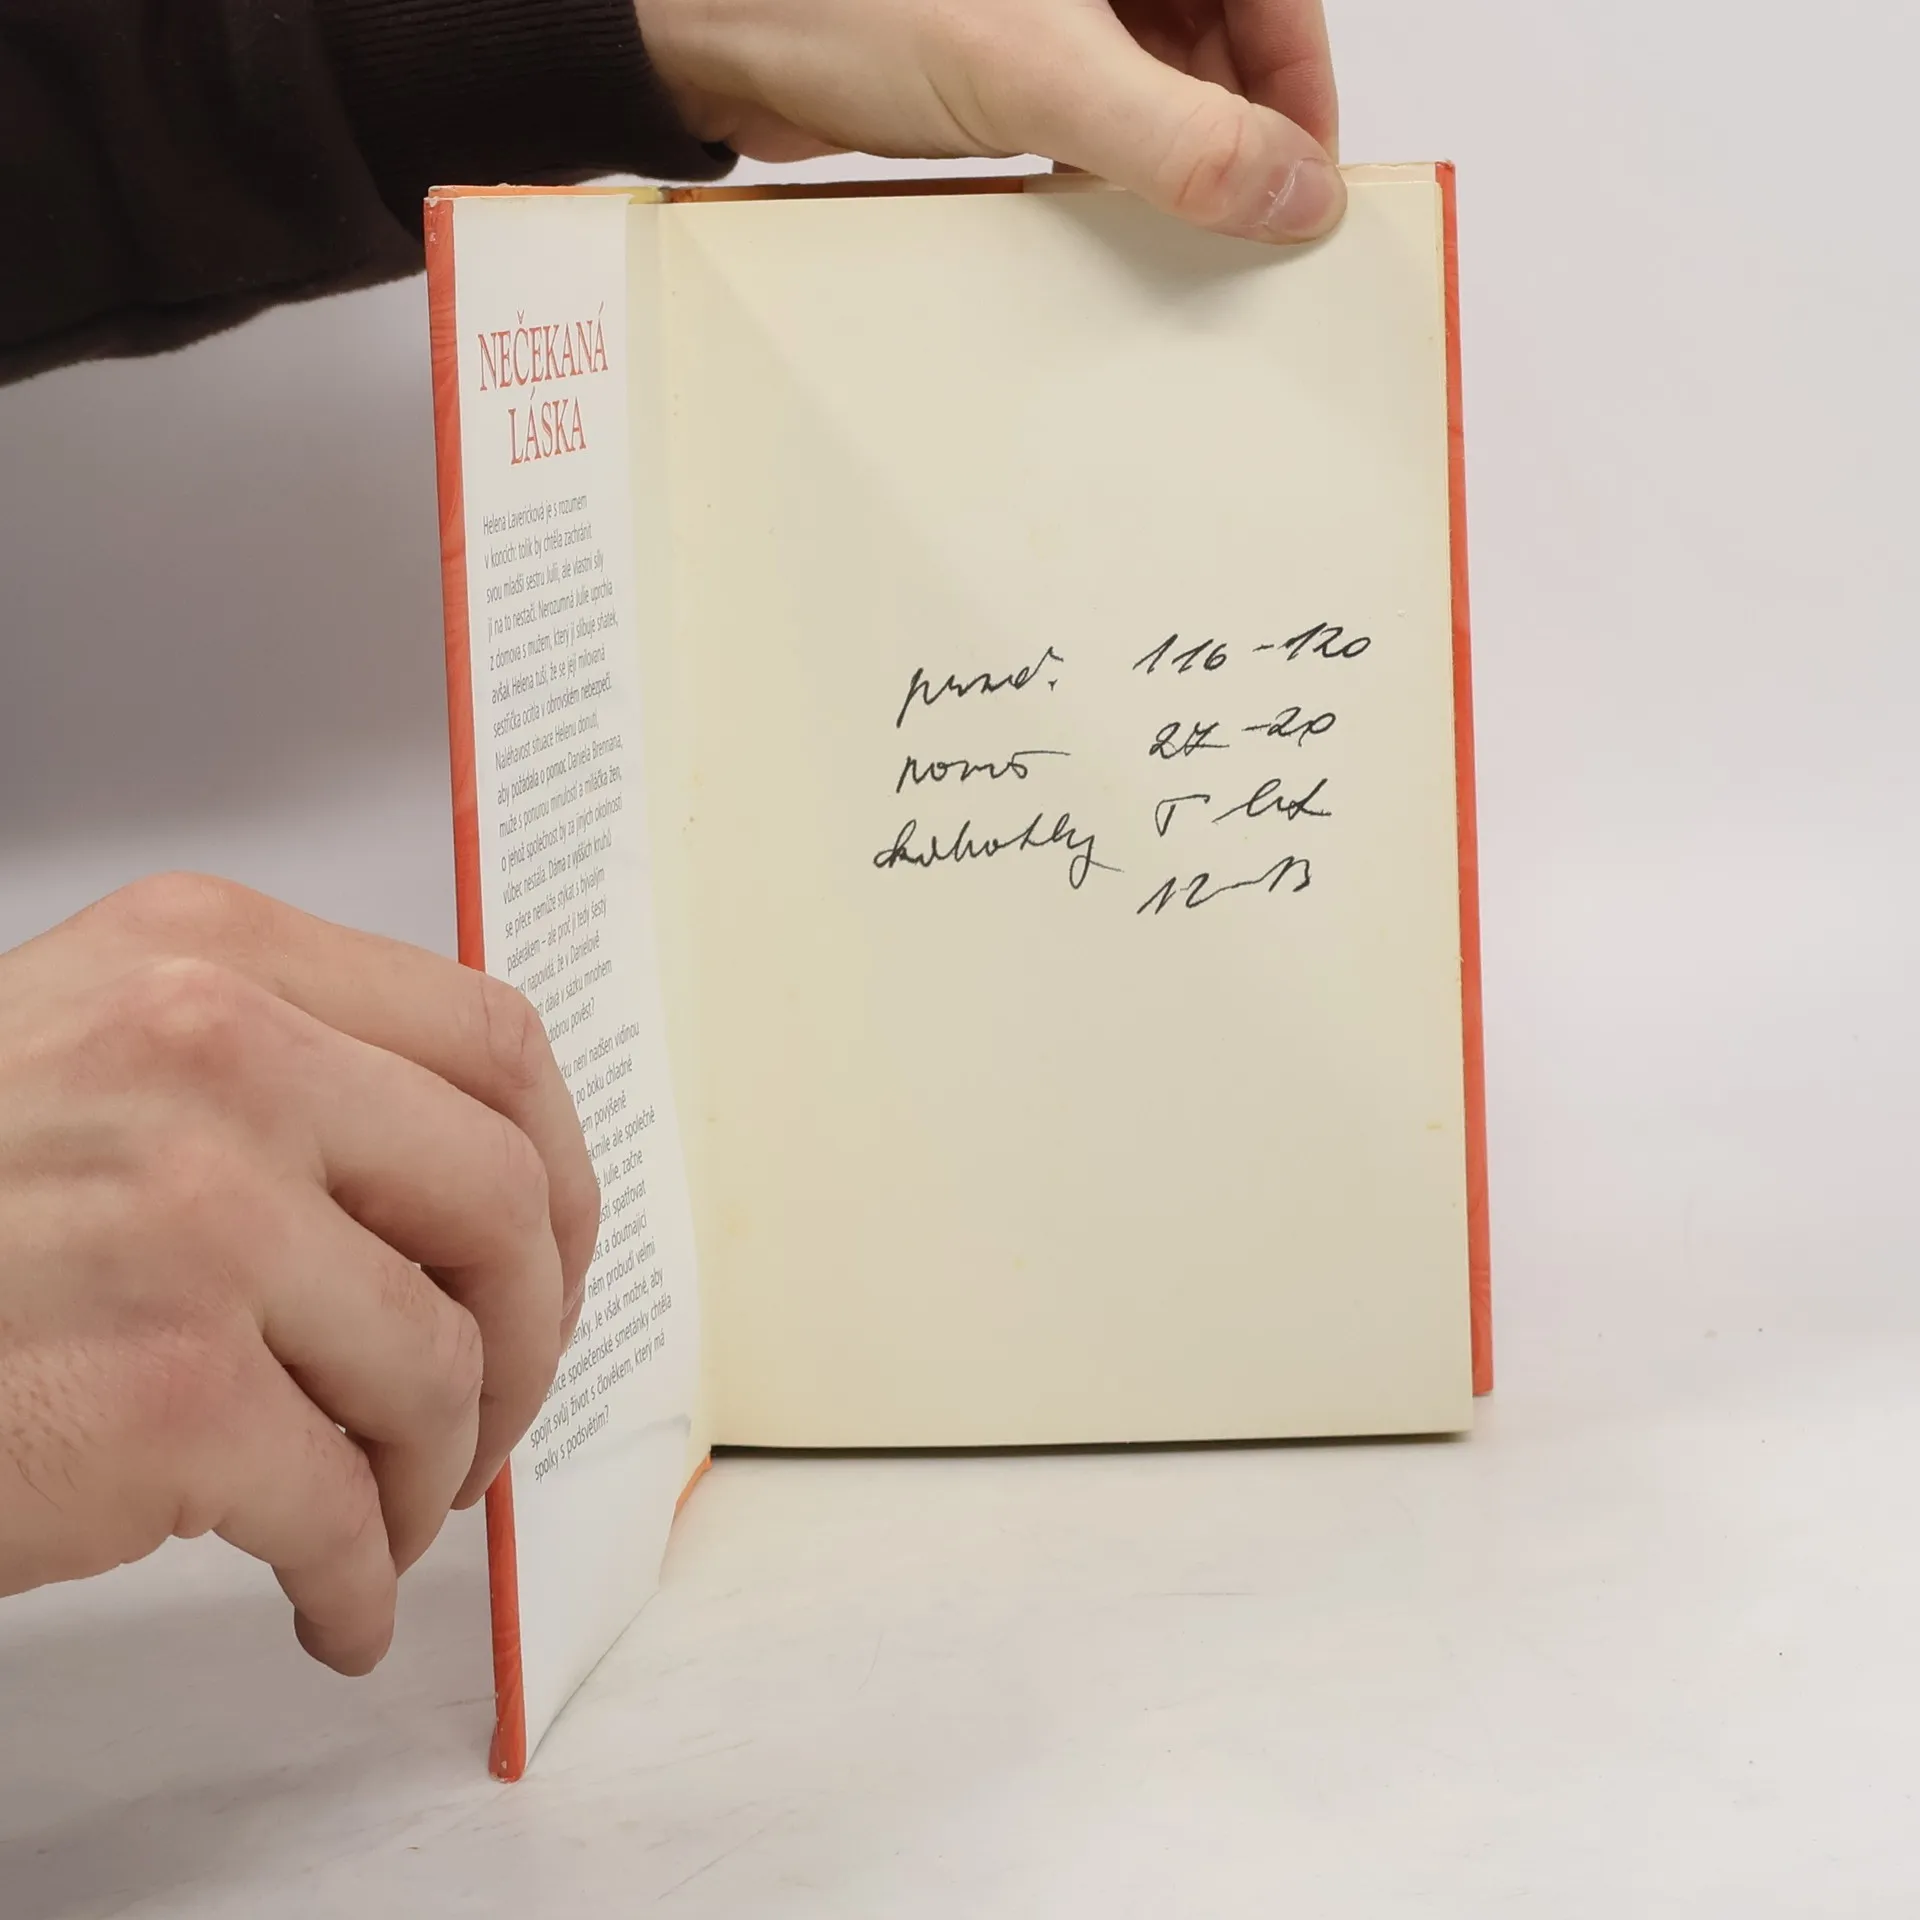 NEČEKANÁ
LÁSKA
Helena Laverícková je s rozumem
v koncích: tolik by chtěla zachránit
svou mladší sestru Julii, ale vlastní síly
jí na to nestačí. Nerozumná Julie uprchla
z domova s mužem, který jí slibuje sňatek,
avšak Helena tuší, že se její milovaná
sestřička ocitla v obrovském nebezpečí.
Naléhavost situace Helenu donutí,
aby požádala o pomoc Daniela Brennana,
muže s ponurou minulostí a miláčka žen,
o jehož společnost by za jiných okolností
vůbec nestála. Dáma z vyšších kruhů
se přece nemůže stýkat s bývalým
pašerákem – ale proč jí tedy šestý
napovídá, že v Danielově
dává v sázku mnohem
dobrou pověst?
není nadšen vidinou
po boku chladné
povýšeně
ale společně
Julie, začne
spatřovat
a doutnající
něm probudí velmi
Je však možné, aby
společenské smetánky chtěla
spojit svůj život s člověkem, který má
spolky s podsvětím?
116-120
27-20
kalhotky
12-13